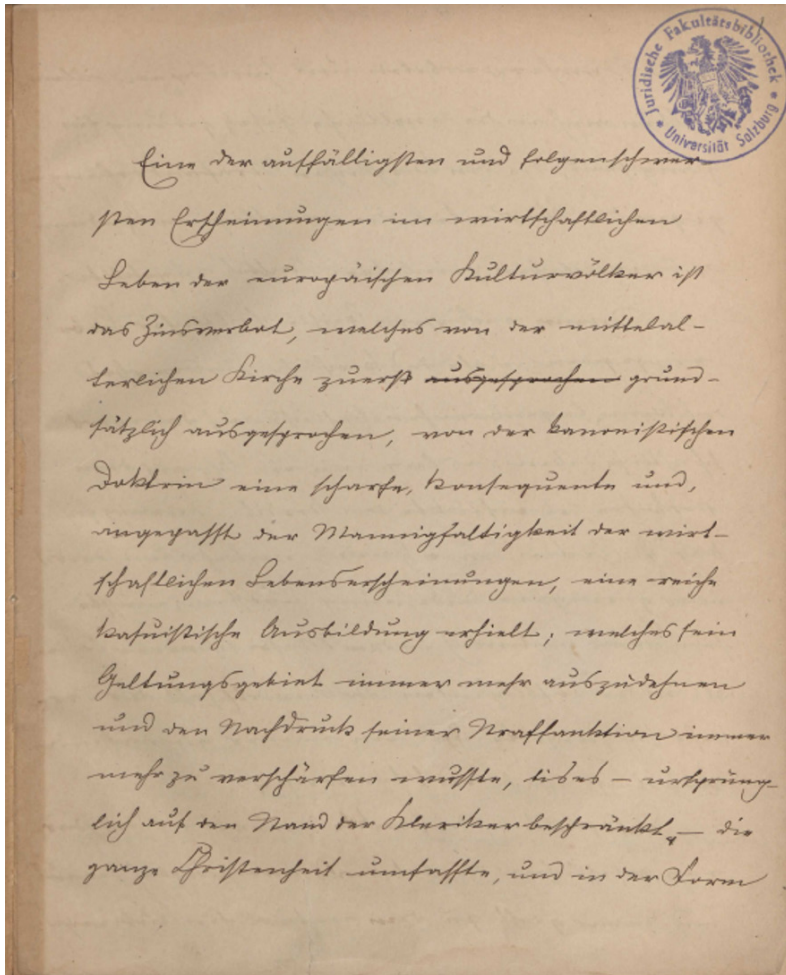 Juridische Fakultätsbibliothek
Universität Salzburg
Eine der auffälligsten und folgenschwer-
sten Erscheinungen im wirtschaftlichen
Leben der europäischen Kulturvölker ist
das Zinsverbot, welches von der mittelal-
terlichen Kirche zuerst ausgesprochen grund-
sätzlich ausgesprochen, von der kanonistischen
Doktrin eine scharfe, konsequente und,
angepasst der Mannigfaltigkeit der wirt-
schaftlichen Lebenserscheinungen, eine reiche
kasuistische Ausbildung erhielt; welches sein
Geltungsgebiet immer mehr auszudehnen
und den Nachdruck seiner Strafsanktion immer
mehr zu verschärfen wusste, bis es – ursprüng-
lich auf den Stand der Kleriker beschränkt, – die
ganze Christenheit umfasste, und in der Form